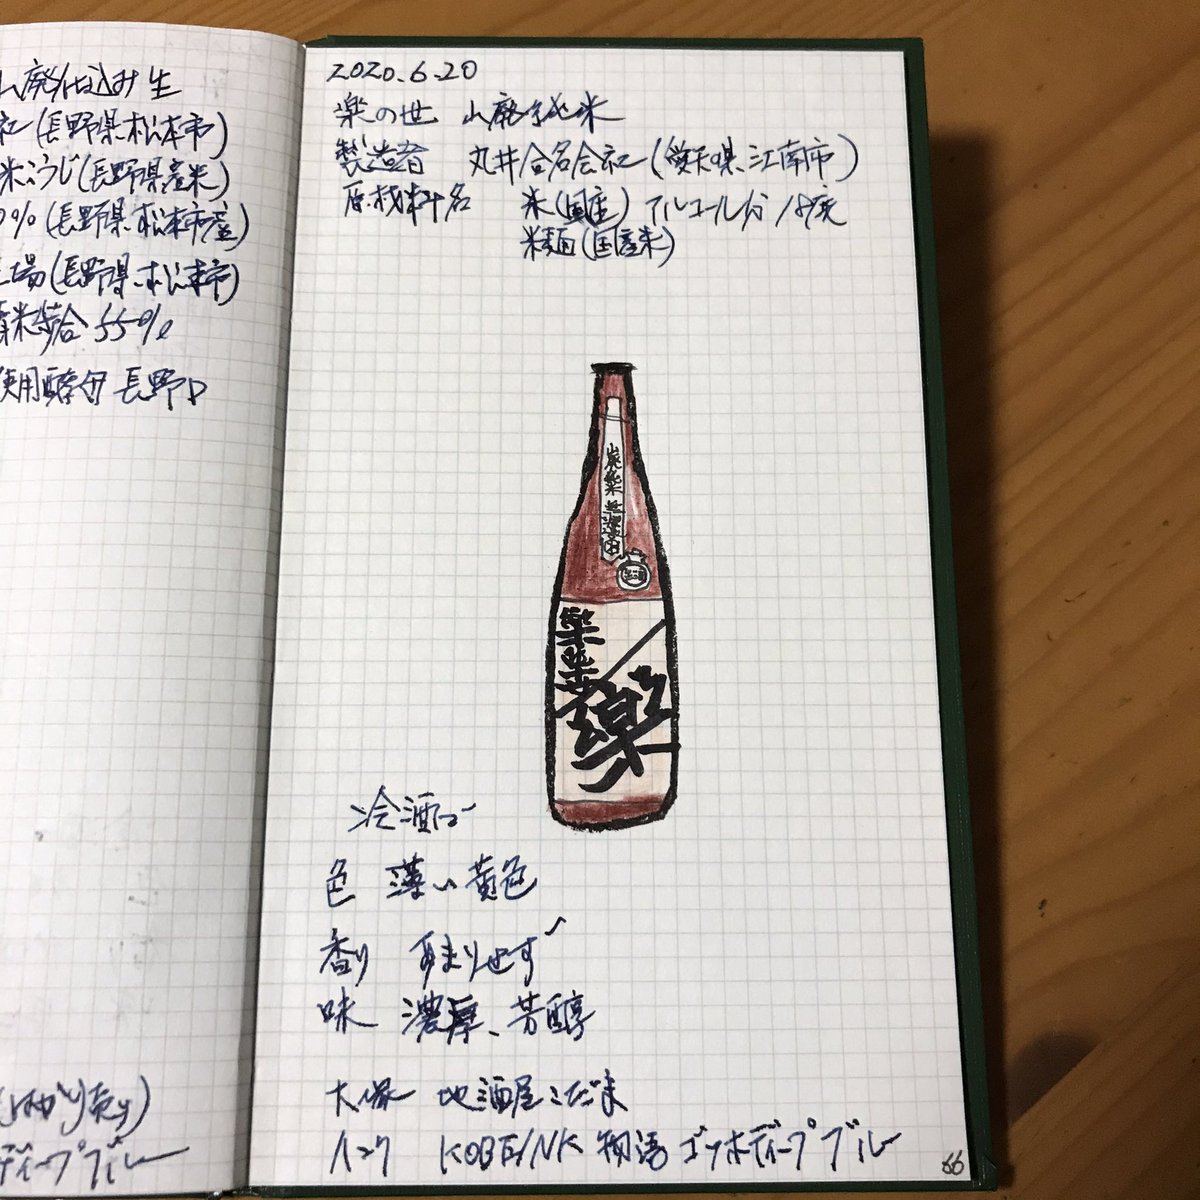 山廃仕込み 生
社(長野県松本市)
米こうじ(長野県産米)
0%(長野県松本市産)
工場(長野県松本市)
精米歩合 55%
使用酵母 長野D
ディープブルー
2020.6.20
楽の世 山廃純米
製造者 丸井合名会社(愛知県江南市)
原材料名 米(国産) アルコール分 18度
米麹(国産米)
冷酒で
色 薄い黄色
香り あまりせず
味 濃厚、芳醇
大塚 地酒屋こだま
インク KOBE INK 物語 ゴッホディープブルー
66